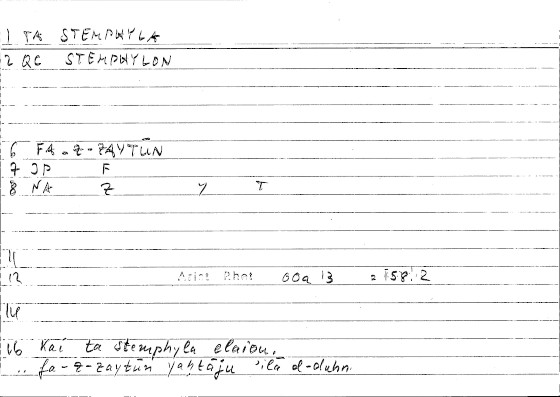 1 TA STEMPHYLA
2 QC STEMPHYLON
6 FA-Z-ZAYTŪN
7 JP F
8 NA Z Y T
11
12 Arist Rhet 60a 13 = 158,2
14
16 Kai ta stemphyla elaiou.
.. fa-z-zaytūn yaḥtāju 'ilā d-duhn.